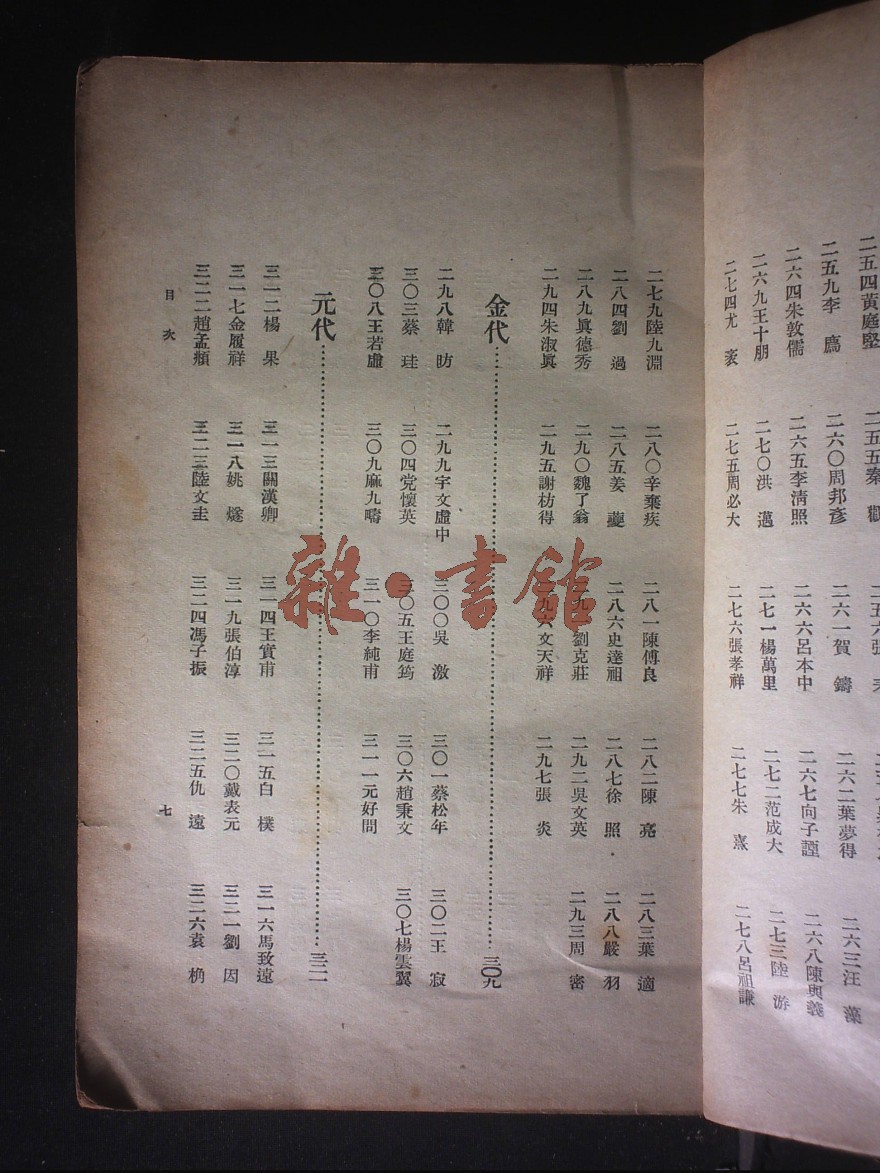 二五四黃庭堅 二五五秦 觀
二五九李 廌 二六〇周邦彥 二六一賀 鑄 二六二葉夢得 二六三汪 藻
二六四朱敦儒 二六五李清照 二六六呂本中 二六七向子諲 二六八陳與義
二六九王十朋 二七〇洪 邁 二七一楊萬里 二七二范成大 二七三陸 游
二七四尤 袤 二七五周必大 二七六張孝祥 二七七朱 熹 二七八呂祖謙
二七九陸九淵 二八〇辛棄疾 二八一陳傅良 二八二陳 亮 二八三葉 適
二八四劉 過 二八五姜 夔 二八六史達祖 二八七徐 照 二八八嚴 羽
二八九眞德秀 二九〇魏了翁 二九 劉克莊 二九二吳文英 二九三周 密
二九四朱淑眞 二九五謝枋得 二九六文天祥 二九七張 炎
金代 三〇九
二九八韓 昉 二九九宇文虛中 三〇〇吳 激 三〇一蔡松年 三〇二王 寂
三〇三蔡 珪 三〇四党懷英 三〇五王庭筠 三〇六趙秉文 三〇七楊雲翼
三〇八王若虛 三〇九麻九疇 三一〇李純甫 三一一元好問
元代 三二一
三一二楊 果 三一三關漢卿 三一四王實甫 三一五白 樸 三一六馬致遠
三一七金履祥 三一八姚 燧 三一九張伯淳 三二〇戴表元 三二一劉 因
三二二趙孟頫 三二三陸文圭 三二四馮子振 三二五仇 遠 三二六袁 桷
目次
七
雜·書館